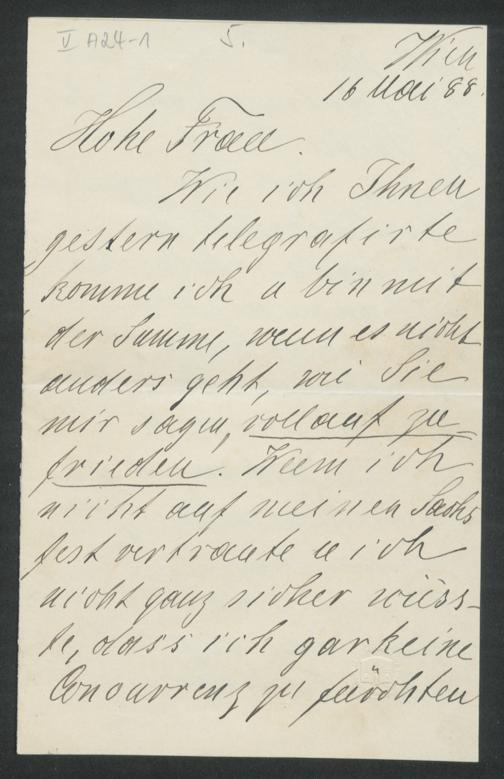 V A24-1
5.
Wien
16 Mai 88.
Hohe Frau.
Wie ich Ihnen
gestern telegrafirte
komme ich u bin mit
der Summe, wenn es nicht
anders geht, wie Sie
mir sagen, vollauf zu-
frieden. Wenn ich
nicht auf meinen Sachs
fest vertraute u ich
nicht ganz sicher wüss-
te, dass ich gar keine
Concurrenz zu fürchten